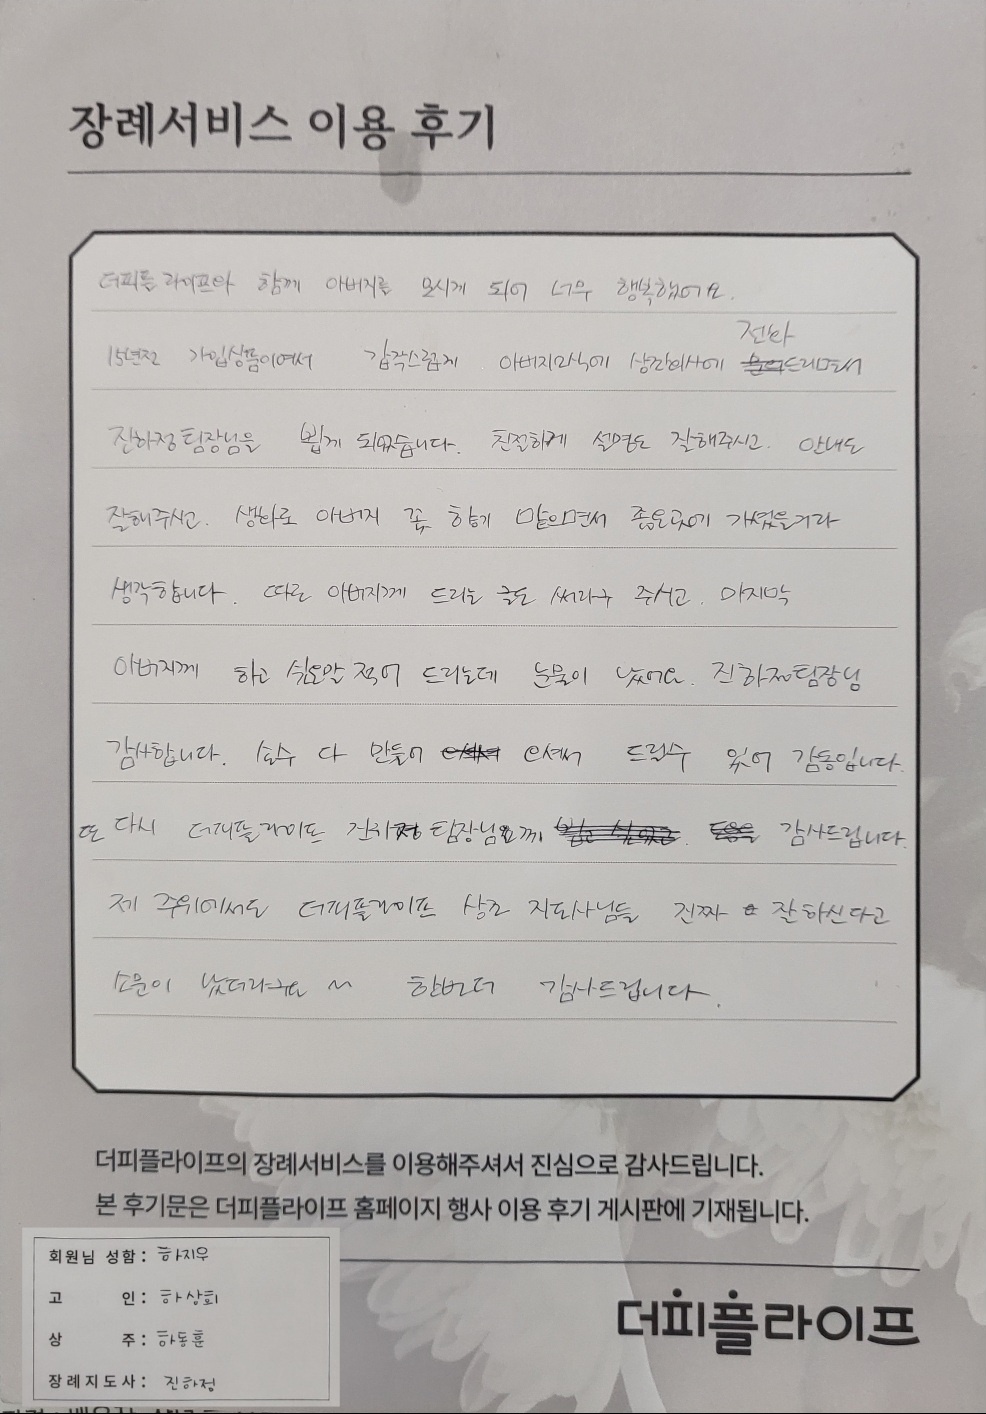 장례서비스 이용 후기
더피플라이프와 함께 아버지를 모시게 되어 너무 행복했어요.
전화
15년전 가입상품이여서 갑작스럽게 아버지 드리면서
진하정팀장님을 뵙게 되었습니다. 친절하게 설명도 잘해주시고. 안내도
잘해주시고. 생화로 아버지 꽃 향기 맡으면서 좋은곳에 가셨을거라
생각합니다. 따로 아버지께 드리는 글도 써라구 주시고. 마지막
아버지께 하고 싶으말 적어 드리는데 눈물이 났어요. 진하정팀장님
감사합니다. 다 만들어 드릴수 있어 감동입니다.
또 다시 더피플라이프 팀장님 감사드립니다.
제 주위에서도 더피플라이프 상조 지도사님들 진짜 잘하신다고
소문이 났더라구요 ~ 한번더 감사드립니다.
더피플라이프의 장례서비스를 이용해주셔서 진심으로 감사드립니다.
본 후기문은 더피플라이프 홈페이지 행사 이용 후기 게시판에 기재됩니다.
회원님 성함 : 하지우
고 인 : 하상희
상 주 : 하동훈
장례지도사 : 진하정
더피플라이프